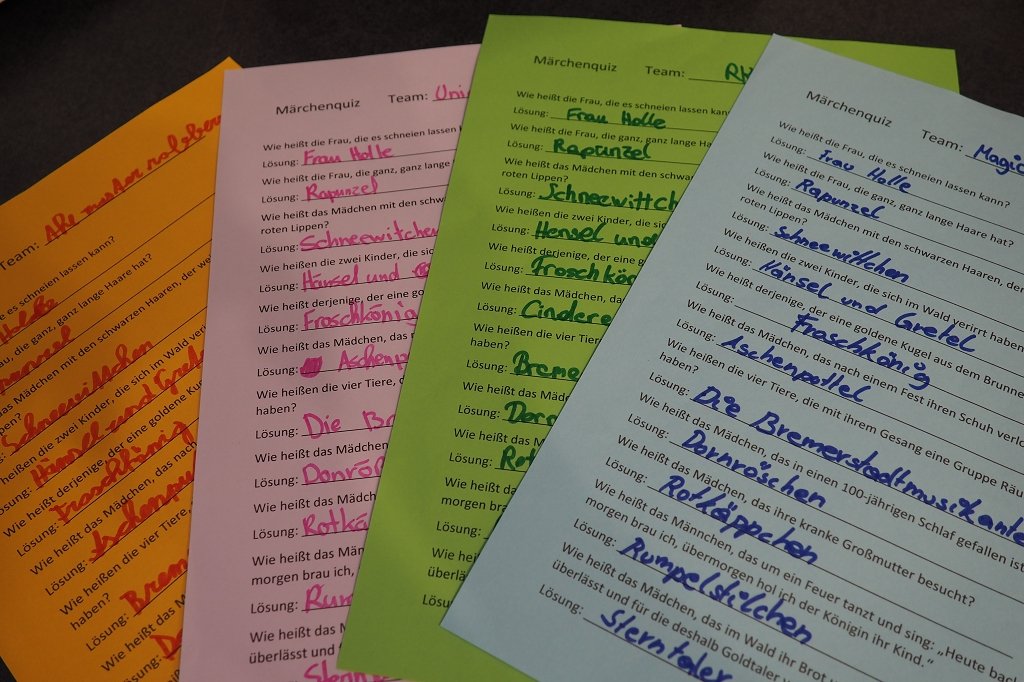 Team:
es schneien lassen kann?
au, die ganz, ganz lange Haare hat?
das Mädchen mit den schwarzen Haaren, der we
Schneewittchen
heißen die zwei Kinder, die sich im Wald veri
Hänsel und Gret
heißt derjenige, der eine goldene Ku
Lösung: Froschkönig
Wie heißt das Mädchen, das nach
Lösung:
Wie heißen die vier Tiere,
haben?
Lösung: Brem
Wie heißt das M
Lösung: Do
Märchenquiz Team: Uni
Wie heißt die Frau, die es schneien lassen k
Lösung: Frau Holle
Wie heißt die Frau, die ganz, ganz lange
Lösung: Rapunzel
Wie heißt das Mädchen mit den schw
roten Lippen?
Lösung: Schneewitchen
Wie heißen die zwei Kinder, die sich
Lösung: Hänsel und
Wie heißt derjenige, der eine gol
Lösung: Froschkönig
Wie heißt das Mädchen, das
Lösung: Aschenp
Wie heißen die vier Tiere, d
haben?
Lösung: Die Br
Wie heißt das Mädchen
Lösung: Donrös
Wie heißt das Mädch
Lösung: Rotkä
Wie heißt das Män
morgen brau ich,
Lösung: Rum
Wie heißt das Mä
überlässt und f
Lösung: Stern
Märchenquiz Team: Rh
Wie heißt die Frau, die es schneien lassen kann?
Lösung: Frau Holle
Wie heißt die Frau, die ganz, ganz lange Ha
Lösung: Rapunzel
Wie heißt das Mädchen mit den schwar
roten Lippen?
Lösung: Schneewittch
Wie heißen die zwei Kinder, die sic
Lösung: Hensel und
Wie heißt derjenige, der eine go
Lösung: Froschkön
Wie heißt das Mädchen, da
Lösung: Cindere
Wie heißen die vier Tiere
haben?
Lösung: Breme
Wie heißt das Mädch
Lösung: Dorr
Wie heißt das Mäd
Lösung: Rot
Wie heißt da
morgen bra
Lösung:
Wie heißt
überläs
Lösu
Märchenquiz Team: Magic
Wie heißt die Frau, die es schneien lassen kann?
Lösung: Frau Holle
Wie heißt die Frau, die ganz, ganz lange Haare hat?
Lösung: Rapunzel
Wie heißt das Mädchen mit den schwarzen Haaren, der
roten Lippen?
Lösung: Schneewittchen
Wie heißen die zwei Kinder, die sich im Wald verirrt haben
Lösung: Hänsel und Gretel
Wie heißt derjenige, der eine goldene Kugel aus dem Brunne
Lösung: Froschkönig
Wie heißt das Mädchen, das nach einem Fest ihren Schuh verlo
Lösung: Aschenpottel
Wie heißen die vier Tiere, die mit ihrem Gesang eine Gruppe Räu
haben?
Lösung: Die Bremerstadtmusikante
Wie heißt das Mädchen, das in einen 100-jährigen Schlaf gefallen ist
Lösung: Dornröschen
Wie heißt das Mädchen, das ihre kranke Großmutter besucht?
Lösung: Rotkäppchen
Wie heißt das Männchen, das um ein Feuer tanzt und sing: „Heute back
morgen brau ich, übermorgen hol ich der Königin ihr Kind.“
Lösung: Rumpelstilchen
Wie heißt das Mädchen, das im Wald ihr Brot
überlässt und für die deshalb Goldtaler v
Lösung: Sterntaler